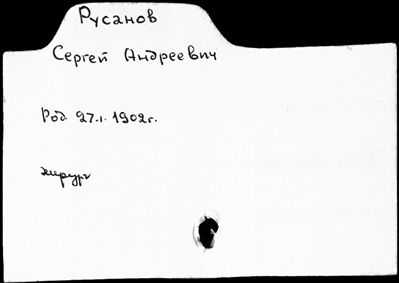 Русанов
Сергей Андреевич
Род. 27.I.1902г.
хирург